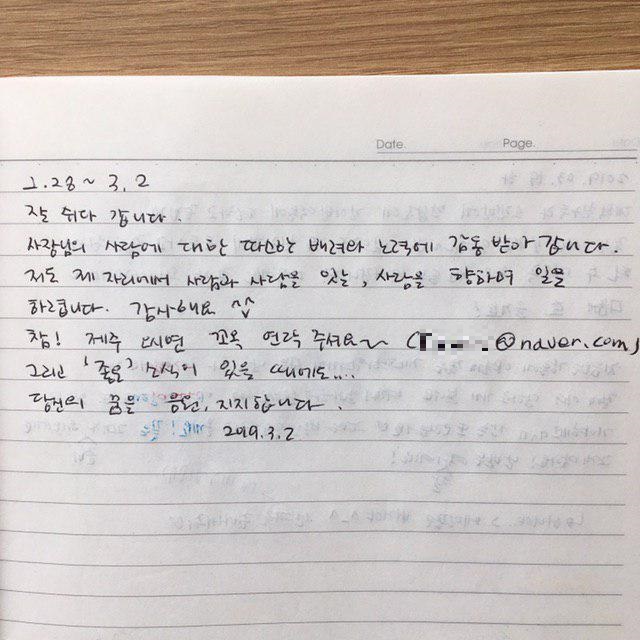 Date. Page.
2.28 ~ 3.2
잘 쉬다 갑니다.
사장님의 사람에 대한 따스한 배려와 노력에 감동 받아 갑니다.
저도 제 자리에서 사람과 사람을 잇는, 사람을 향하여 일을
하렵니다. 감사해요 ^^
참! 제주 오시면 꼬옥 연락 주셔요~ ( @naver.com)
그리고 '좋은' 소식이 있을 때에도...
당신의 꿈을 응원, 지지합니다.
2019.3.2